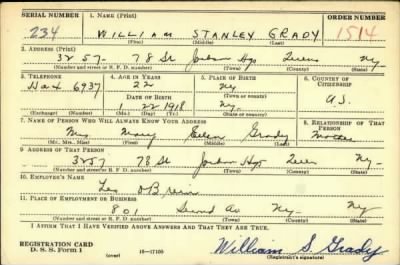 SERIAL NUMBER 1. NAME (Print) ORDER NUMBER
234 WILLIAM STANLEY GRADY 1514
(First) (Middle) (Last)
2. ADDRESS (Print)
3257- 78 St Jackson Hgts Queens Ny-
(Number and street or R. F. D. number) (Town) (County) (State)
3. TELEPHONE 4. AGE IN YEARS 5. PLACE OF BIRTH 6. COUNTRY OF CITIZENSHIP
Hav 6937 22 Ny- U.S.
DATE OF BIRTH (Town or county)
1 22 1918 Ny-
(Exchange) (Number) (Mo.) (Day) (Yr.) (State or country)
7. NAME OF PERSON WHO WILL ALWAYS KNOW YOUR ADDRESS 8. RELATIONSHIP OF THAT PERSON
Mrs Mary Ellen Grady Mother
(Mr., Mrs., Miss) (First) (Middle) (Last)
9. ADDRESS OF THAT PERSON
3257 78 St Jackson Hgts Queens Ny-
(Number and street or R. F. D. number) (Town) (County) (State)
10. EMPLOYER'S NAME
Leo O'Brien
11. PLACE OF EMPLOYMENT OR BUSINESS
801 Second Av Ny- Ny-
(Number and street or R. F. D. number) (Town) (County) (State)
I AFFIRM THAT I HAVE VERIFIED ABOVE ANSWERS AND THAT THEY ARE TRUE.
REGISTRATION CARD
D. S. S. Form 1 (over) 16—17105 William S. Grady
(Registrant's signature)